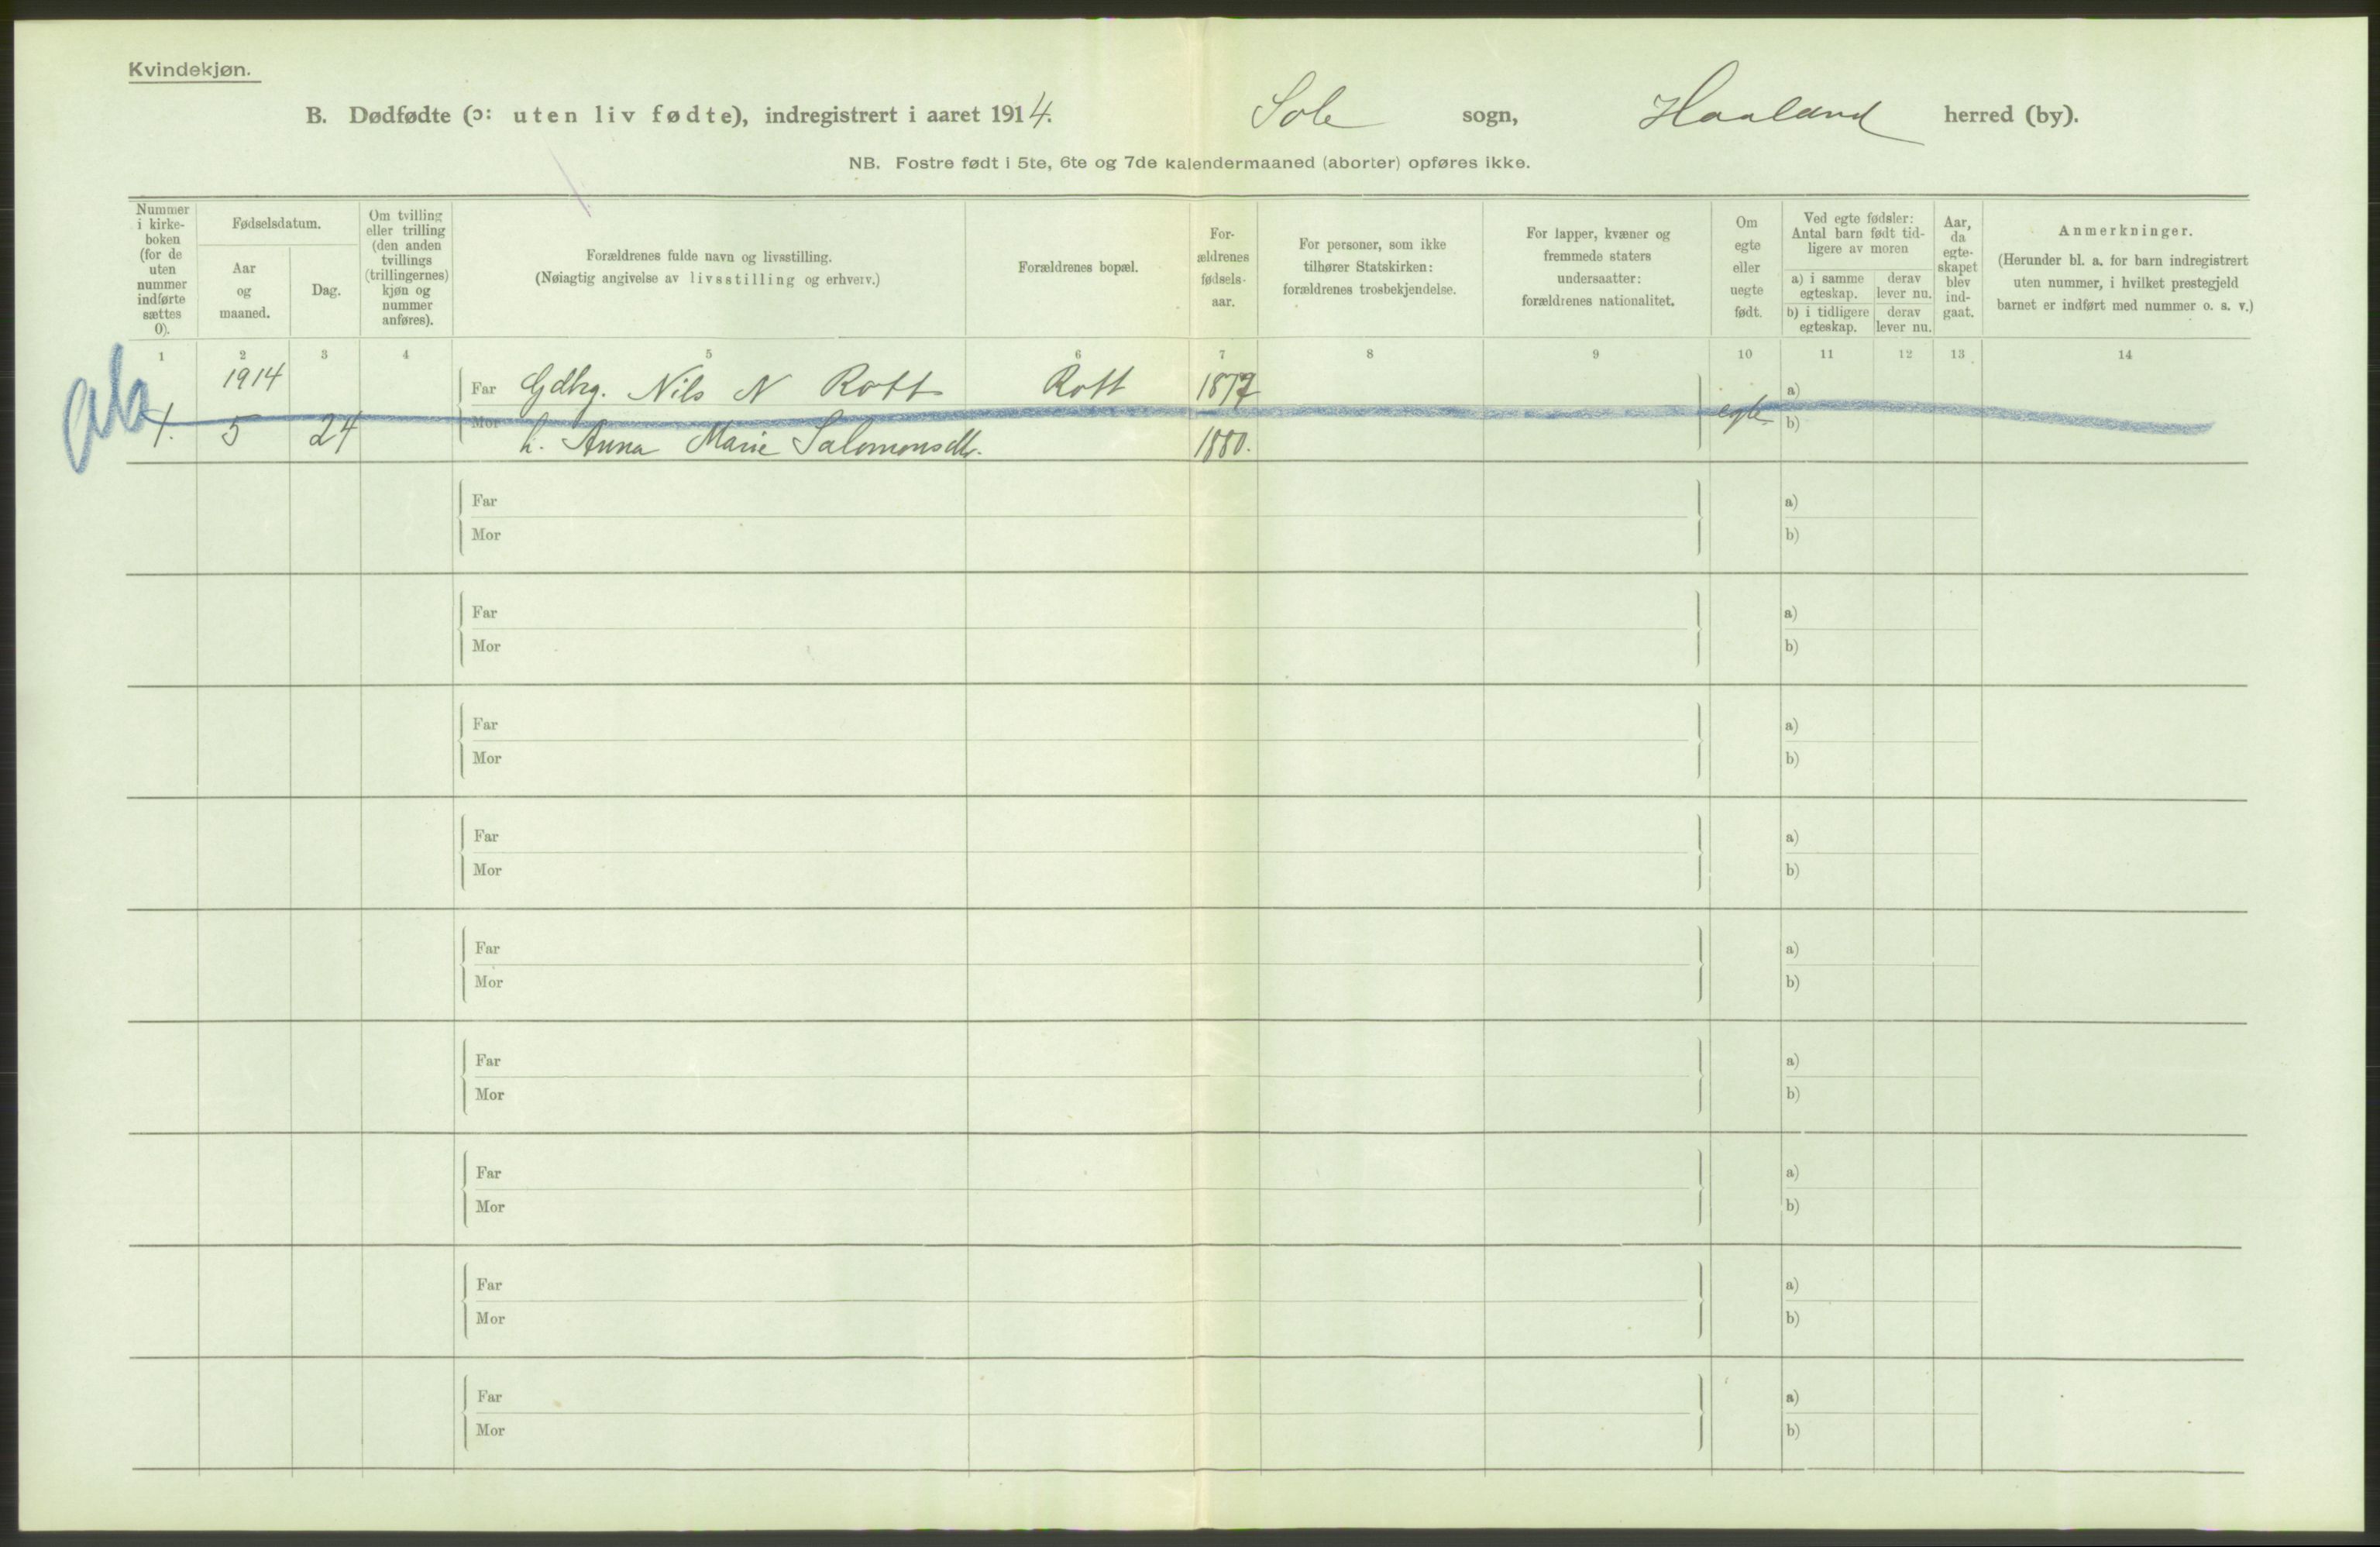 Kvindekjøn.
B. Dødfødte (ɔ: uten liv fødte), indregistrert i aaret 1914. Sole sogn, Haaland herred (by).
NB. Fostre født i 5te, 6te og 7de kalendermaaned (aborter) opføres ikke.
Nummer i kirke- boken (for de uten nummer indførte sættes 0).
Fødselsdatum.
Aar og maaned.
Dag.
Om tvilling eller trilling (den anden tvillings (trillingernes) kjøn og nummer anføres).
Forældrenes fulde navn og livsstilling.
(Nøiagtig angivelse av livsstilling og erhverv.)
Forældrenes bopæl.
For- ældrenes fødsels- aar.
For personer, som ikke tilhører Statskirken: forældrenes trosbekjendelse.
For lapper, kvæner og fremmede staters undersaatter: forældrenes nationalitet.
Om egte eller uegte født.
Ved egte fødsler: Antal barn født tid- ligere av moren
a) i samme egteskap.
derav lever nu.
b) i tidligere egteskap.
derav lever nu.
Aar, da egte- skapet blev ind- gaat.
Anmerkninger.
(Herunder bl. a. for barn indregistrert uten nummer, i hvilket prestegjeld barnet er indført med nummer o. s. v.)
1 2 3 4 5 6 7 8 9 10 11 12 13 14
1914 Far Gdbrg. Nils N Rott Rott 1877 a)
1. 5 24 Mor h. Anna Marie Salomonsdtr. 1880. egte b)
Far a)
Mor b)
Far a)
Mor b)
Far a)
Mor b)
Far a)
Mor b)
Far a)
Mor b)
Far a)
Mor b)
Far a)
Mor b)
Far a)
Mor b)
Far a)
Mor b)